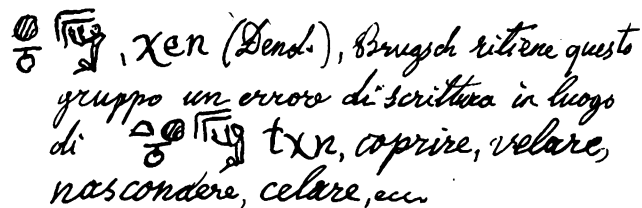 , χen (Dend.), Brugsch ritiene questo
gruppo un errore di scrittura in luogo
di tχn, coprire, velare,
nascondere, celare, ecc.